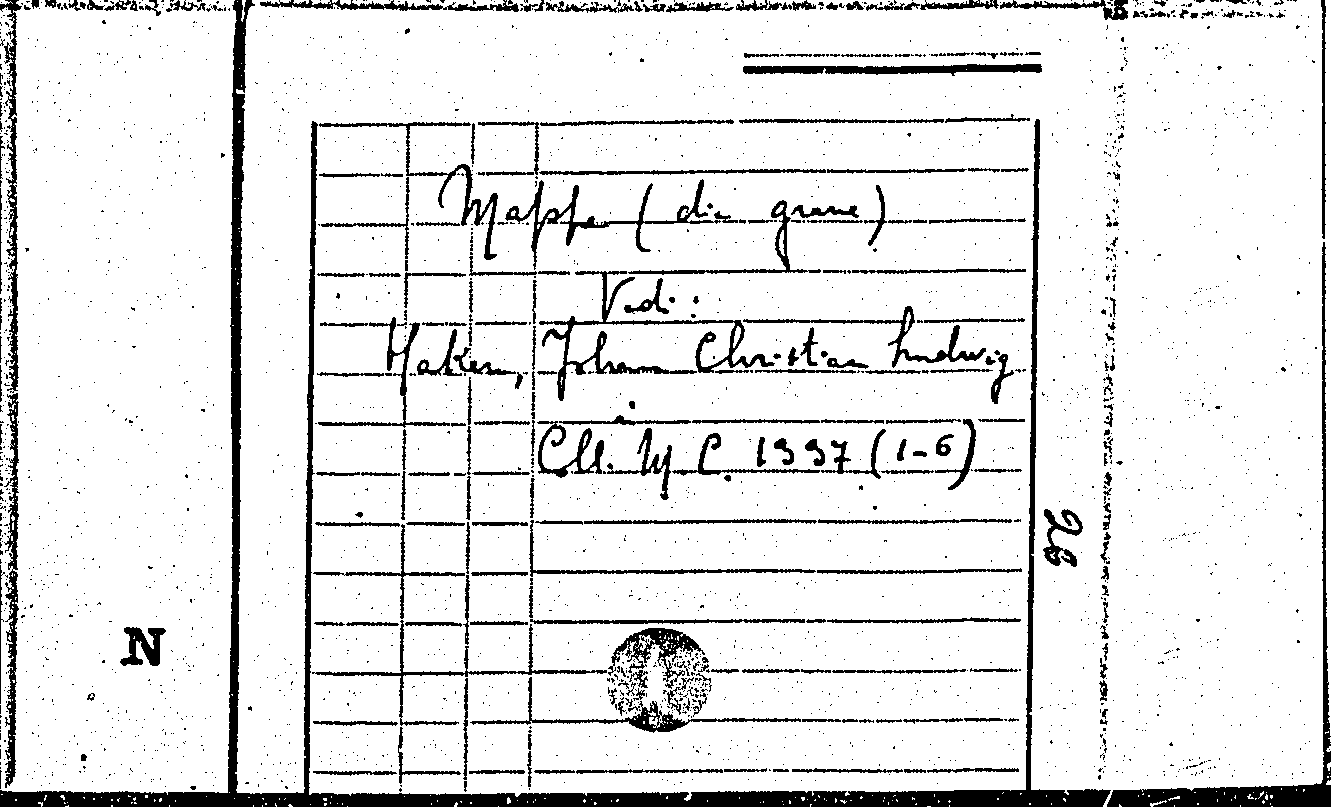 Mappe (die graue)
Vedi:
Haken, Johann Christian Ludwig
in
Coll. It. C. 1997 (1-6)
28
N